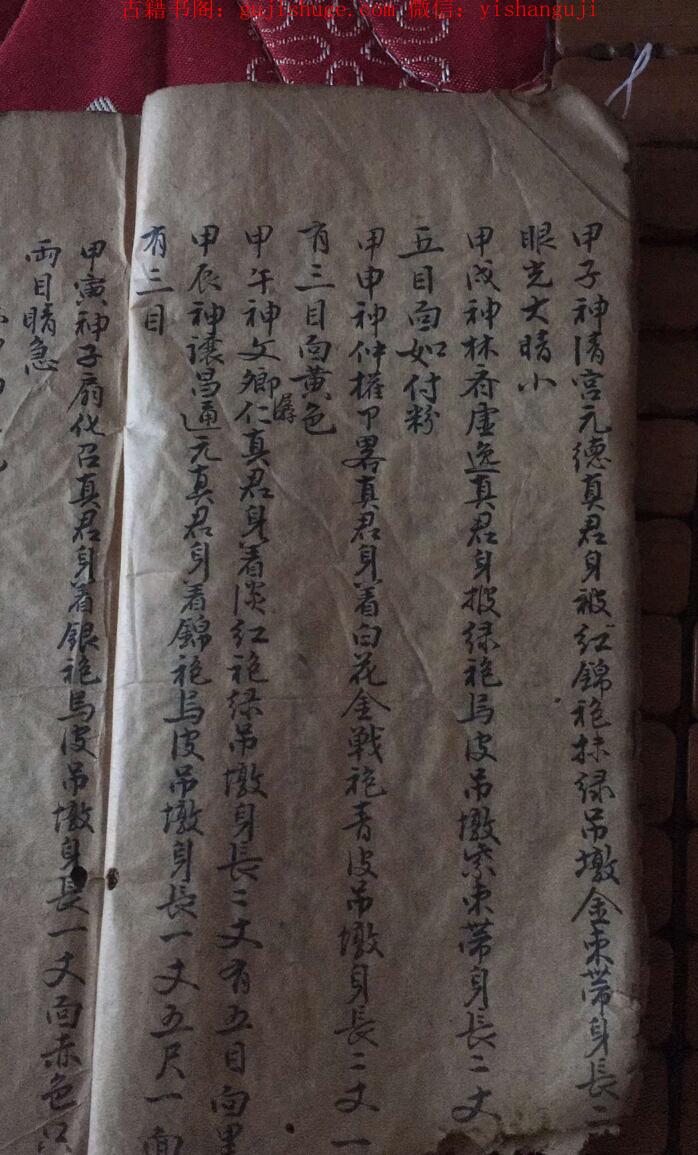 古籍书阁：gujishuge.com 微信：yishanguji
甲子神清宫元德真君身被红錦袍抹绿吊墩金束带身長二
眼光大睛小
甲戌神林府虚逸真君身披绿袍烏皮吊墩索束带身長二丈
五目面如付粉
甲申神仲權卩畧真君身着白花金戦袍青皮吊墩身長二丈一
有三目面黄色
甲午神文卿仁真君身着淡红袍绿吊墩身長二丈有五目面里
甲辰神讓昌通元真君身着錦袍烏皮吊墩身長一丈五尺一面
有三目
甲寅神子扇化召真君身着銀袍馬皮吊墩身長一丈面赤色只
両目睛急